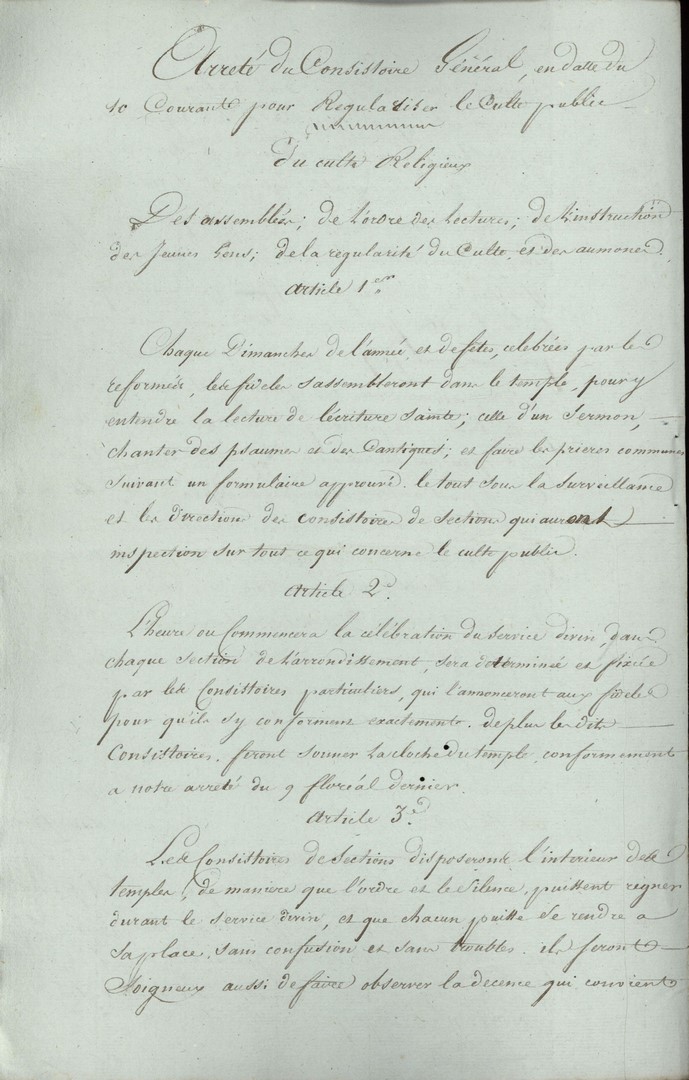 Arreté du Consistoire Général, en datte du
10 Courant pour Regulariser le Culte public
Du culte Religieux
Des assemblées; de l'ordre des Lectures; de l'instruction
des Jeunes Gens; de la regularité du Culte, et des aumones.
article 1er
Chaque Dimanches de l'année, et de fêtes, celebrées par les
reformés, les fideles s'assembleront dans le temple, pour y
entendre la lecture de l'écriture Sainte; celle d'un Sermon,
chanter des psaumes et des Cantiques; et faire les prieres communes
suivant un formulaire approuvé. le tout sous la Surveillance
et les direction des consistoires de Sections qui auront
inspection sur tout ce qui concerne le culte public.
article 2d.
L'heure ou Commencera la célébration du Service divin, dans
chaque section de l'arrondissement, sera determinée et fixée
par les Consistoires particuliers, qui l'annonceront aux fideles
pour qu'ils s'y conforment exactement. deplus les dits
Consistoires, feront sonner la cloche du temple, conformement
a notre arreté du 9 floréal dernier.
article 3d.
Les Consistoires de Sections disposeront l'interieur des
temples, de maniere que l'ordre et le Silence, puissent regner
durant le service divin, et que chacun puisse se rendre a
sa place, sans confusion et sans troubles. ils seront
Soigneux aussi de faire observer la decence qui convient